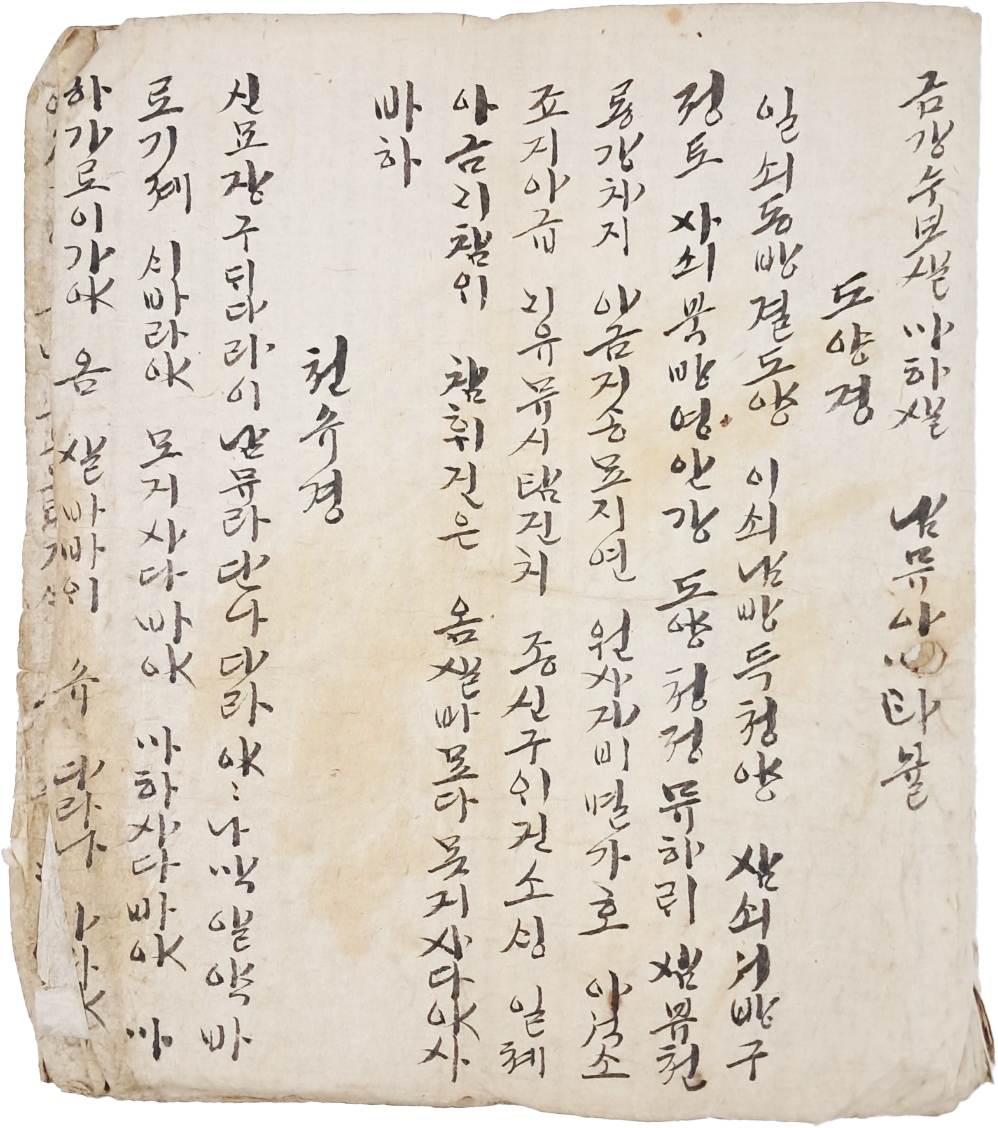 금강수보살 마하살 남무아미타불
도양경
일쇠동방결도양 이쇠남방득청양 삼쇠서방구
정토 사쇠북방영안강 도양청정무하뤼 삼뮤천
룡강차지 아금지송묘지연 원사자비멸가호 아석소
죠지아급 긔유뮤시탐진치 종신구의긴소싱 일쳬
아금긔참위 참휘진은 옴살바모다못지사다야사
바하
천슈경
신묘장구듸다라이 난뮤라단나다라야야나막알약바
로기졔 싀바라야 모지사다바야 마하사다바야 마
하가로이가야 옴 살바바예 슈 다라나